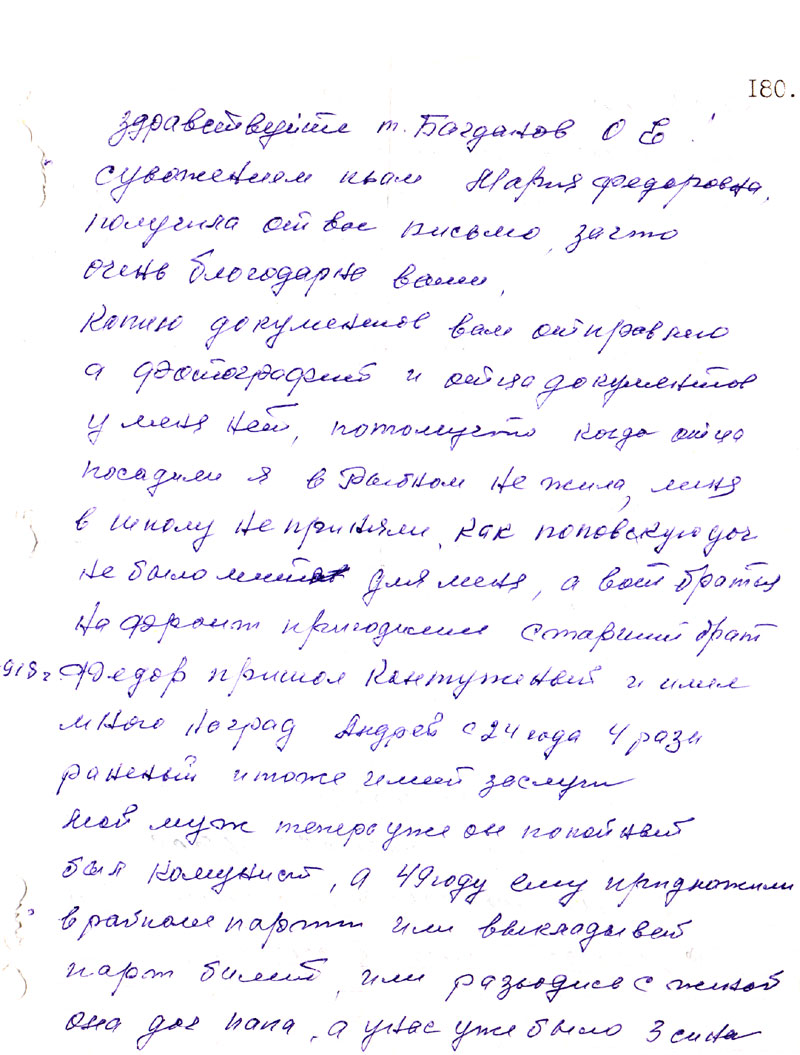 180.
здравствуйте т. Багданов О Е!
суважением квам Мария Федоровна,
получила от вас письмо, зачто
очень благодарна вами,
Копию документов вам отправляю
а фотографий и отца документов
у меня нет, потомучто когда отца
посадили я в Рыбном не жила, меня
в школу не приняли, как поповскую доч
не было места для меня, а вот братья
на фронт пригодились старший брат
918 г. Федор пришол Контуженый и имел
много наград Андрей с 24 года 4 раза
раненый и тоже имеет заслуги
мой муж теперь уже он покойный
был Комунист, а 49 году ему придложили
в райкоме партии или выкладывай
парт билет, или разводись с женой
она доч папа, а унас уже было 3 сина